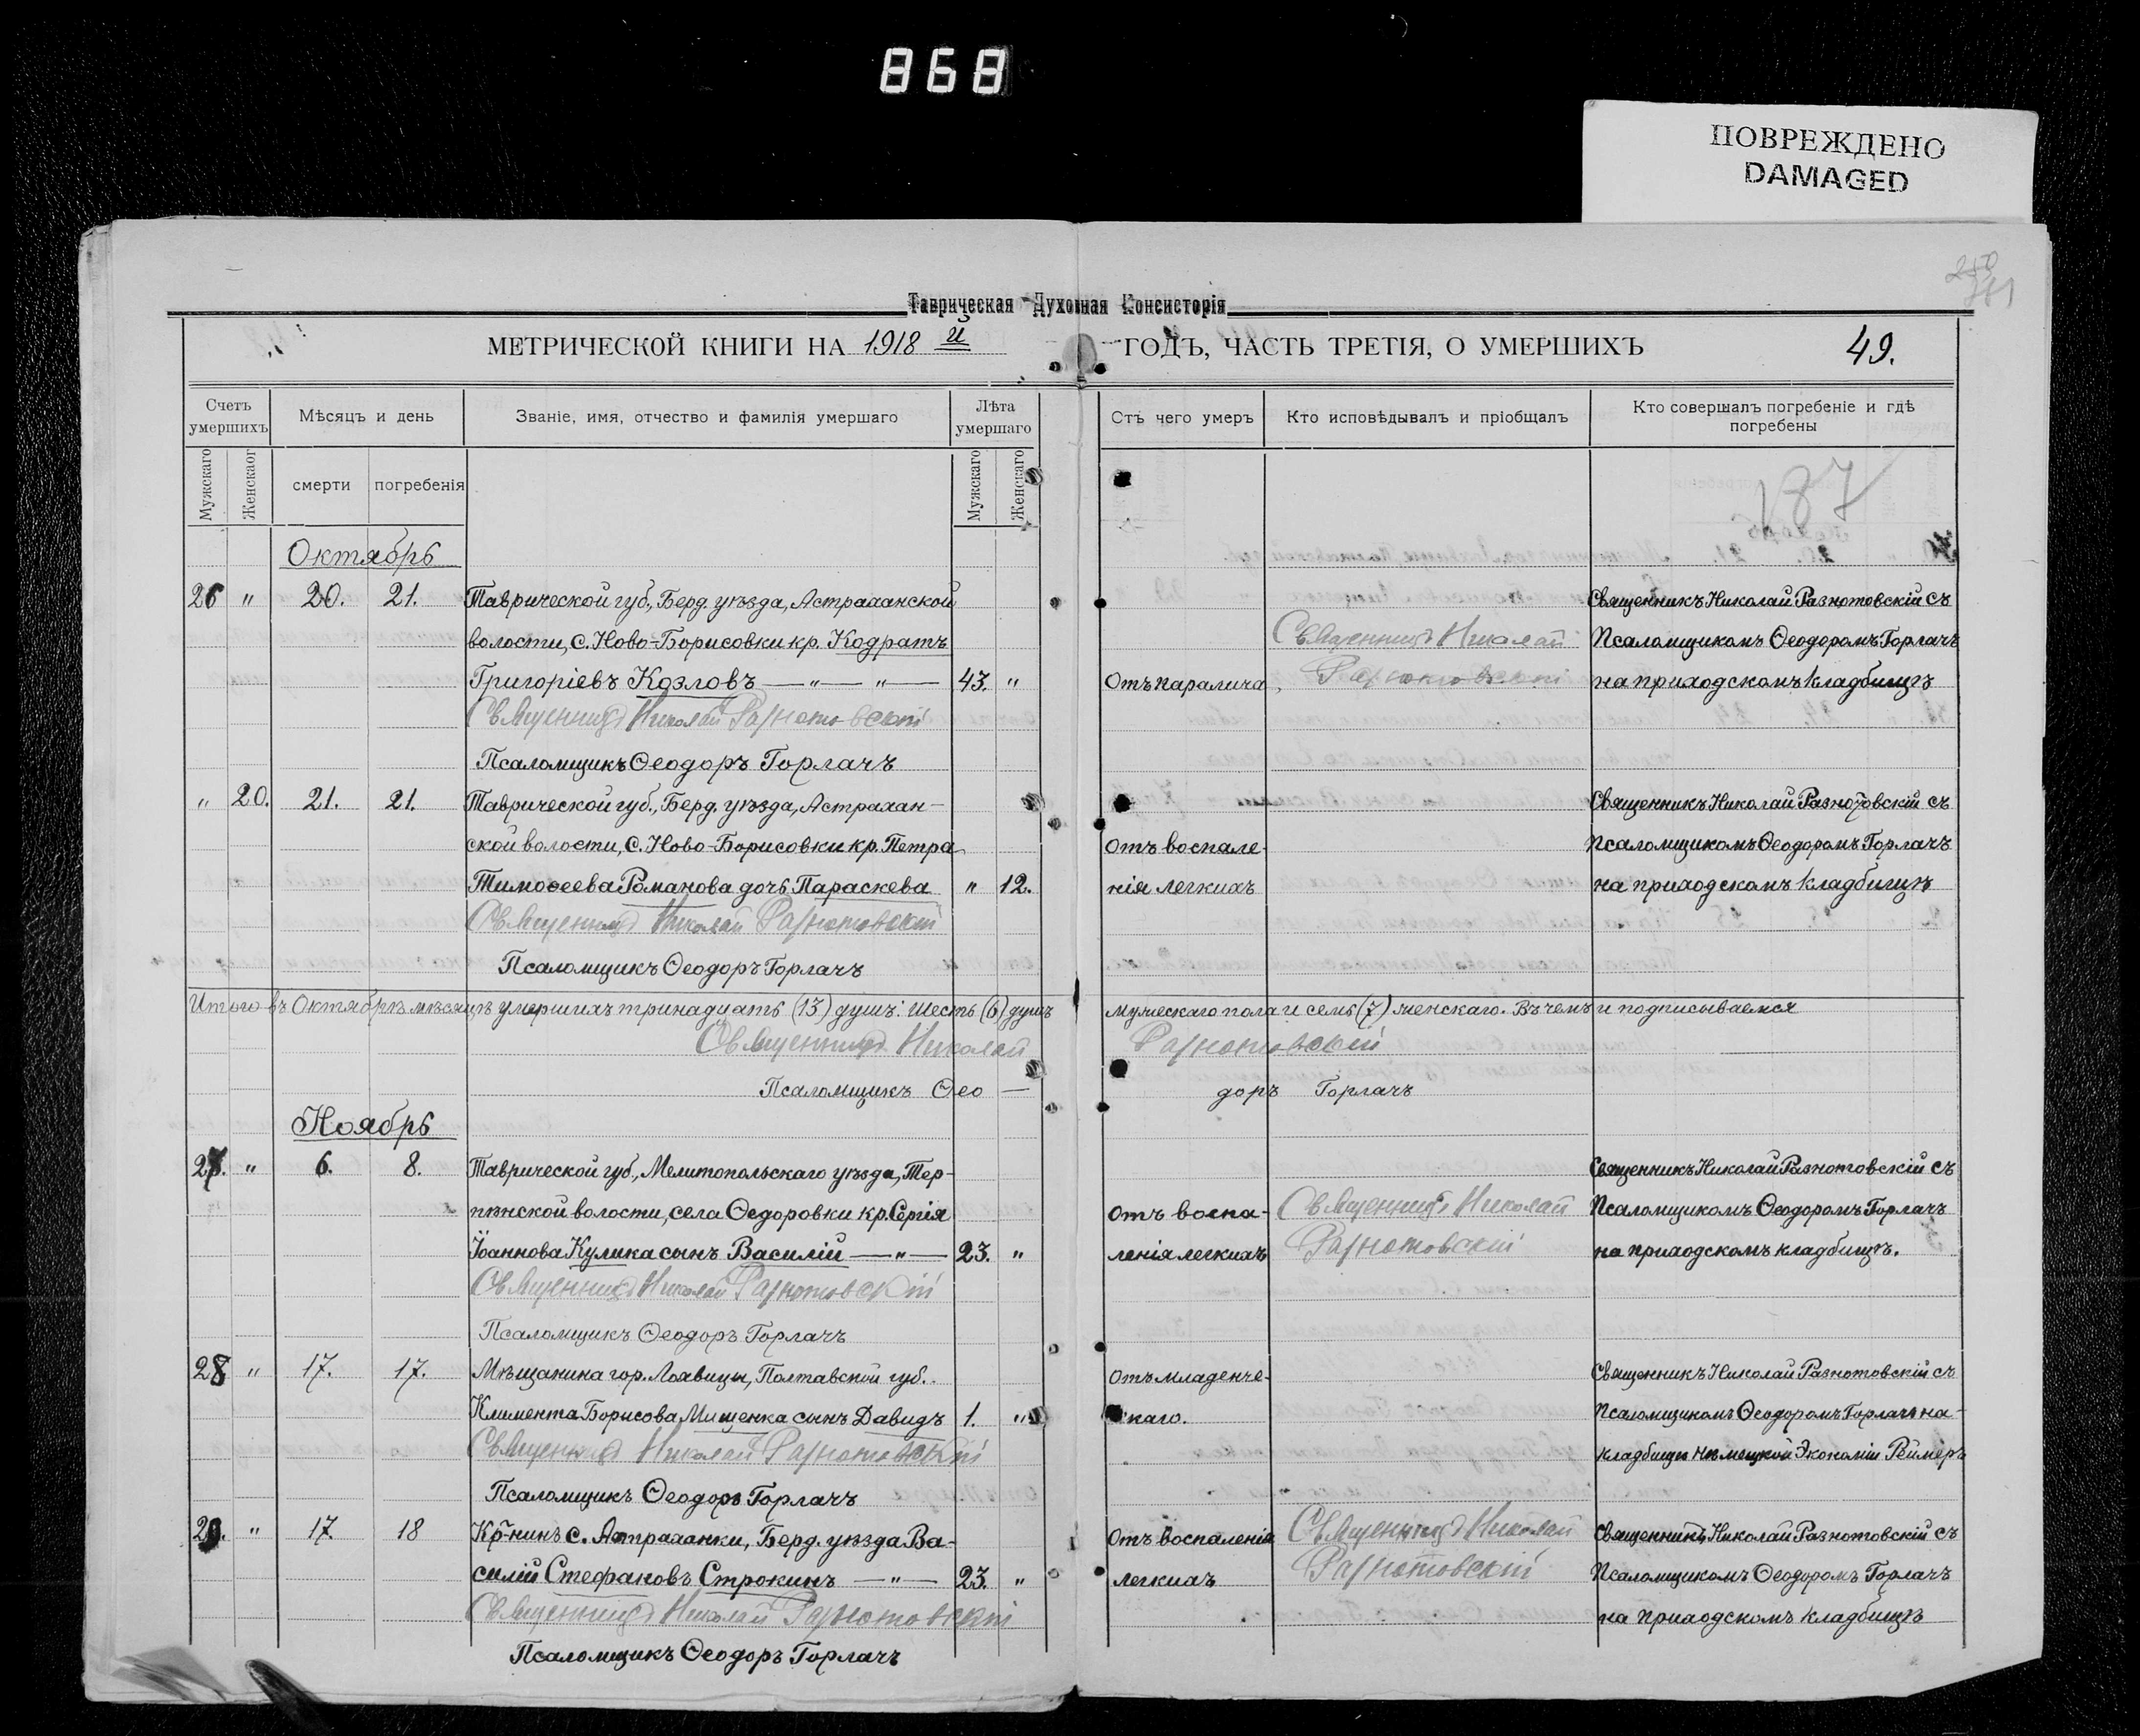 868
ПОВРЕЖДЕНО
DAMAGED
Таврическая Духовная Консисторія
МЕТРИЧЕСКОЙ КНИГИ НА 1918 й ГОДЪ, ЧАСТЬ ТРЕТІЯ, О УМЕРШИХЪ 49.
Счетъ умершихъ
Мѣсяцъ и день
Званіе, имя, отчество и фамилія умершаго
Лѣта умершаго
Отъ чего умеръ
Кто исповѣдывалъ и пріобщалъ
Кто совершалъ погребеніе и гдѣ погребены
Мужскаго
Женскаог
смерти
погребенія
Мужскаго
Женскаго
187
Октябрь
26 " 20. 21. Таврической губ., Берд. уѣзда, Астраханской Священникъ Николай Разнотовскій съ
волости, с. Ново-Борисовки кр. Кодратъ Священникъ Николай Псаломщикомъ Ѳеодоромъ Горлачъ
Григоріевъ Козловъ — " — " — 43. " Отъ паралича Разнотовскій на приходскомъ кладбищѣ
Священникъ Николай Разнотовскій
Псаломщикъ Ѳеодоръ Горлачъ
" 20. 21. 21. Таврической губ., Берд. уѣзда, Астрахан- Священникъ Николай Разнотовскій съ
ской волости, с. Ново-Борисовки кр. Петра Отъ воспале- Псаломщикомъ Ѳеодоромъ Горлачъ
Тимоѳеева Романова дочь Параскева " 12. нія легкихъ на приходскомъ кладбищѣ
Священникъ Николай Разнотовскій
Псаломщикъ Ѳеодоръ Горлачъ
Итого въ Октябрѣ мѣсяцѣ умершихъ тринадцать (13) душъ: шесть (6) душъ мужескаго пола и семь (7) женскаго. Въ чемъ и подписываемся
Священникъ Николай Разнотовскій
Псаломщикъ Ѳео — доръ Горлачъ
Ноябрь
27. " 6. 8. Таврической губ., Мелитопольскаго уѣзда, Тер- Священникъ Николай Разнотовскій съ
пѣнской волости, села Ѳедоровки кр. Сергія Отъ воспа- Священникъ Николай Псаломщикомъ Ѳеодоромъ Горлачъ
Іоаннова Кулика сынъ Василій — " — 23. " ленія легкихъ Разнотовскій на приходскомъ кладбищѣ.
Священникъ Николай Разнотовскій
Псаломщикъ Ѳеодоръ Горлачъ
28 " 17. 17. Мѣщанина гор. Лохвицы, Полтавской губ. Отъ младенче- Священникъ Николай Разнотовскій съ
Климента Борисова Мищенка сынъ Давидъ 1. " скаго. Псаломщикомъ Ѳеодоромъ Горлачъ на
Священникъ Николай Разнотовскій кладбищѣ нѣмецкой Экономіи Реймеръ
Псаломщикъ Ѳеодоръ Горлачъ
29. " 17. 18 Кр-нинъ с. Астраханки, Берд. уѣзда Ва- Отъ воспаленія Священникъ Николай Священникъ Николай Разнотовскій съ
силій Стефановъ Строкинъ — " — 23. " легкихъ Разнотовскій Псаломщикомъ Ѳеодоромъ Горлачъ
Священникъ Николай Разнотовскій на приходскомъ кладбищѣ
Псаломщикъ Ѳеодоръ Горлачъ